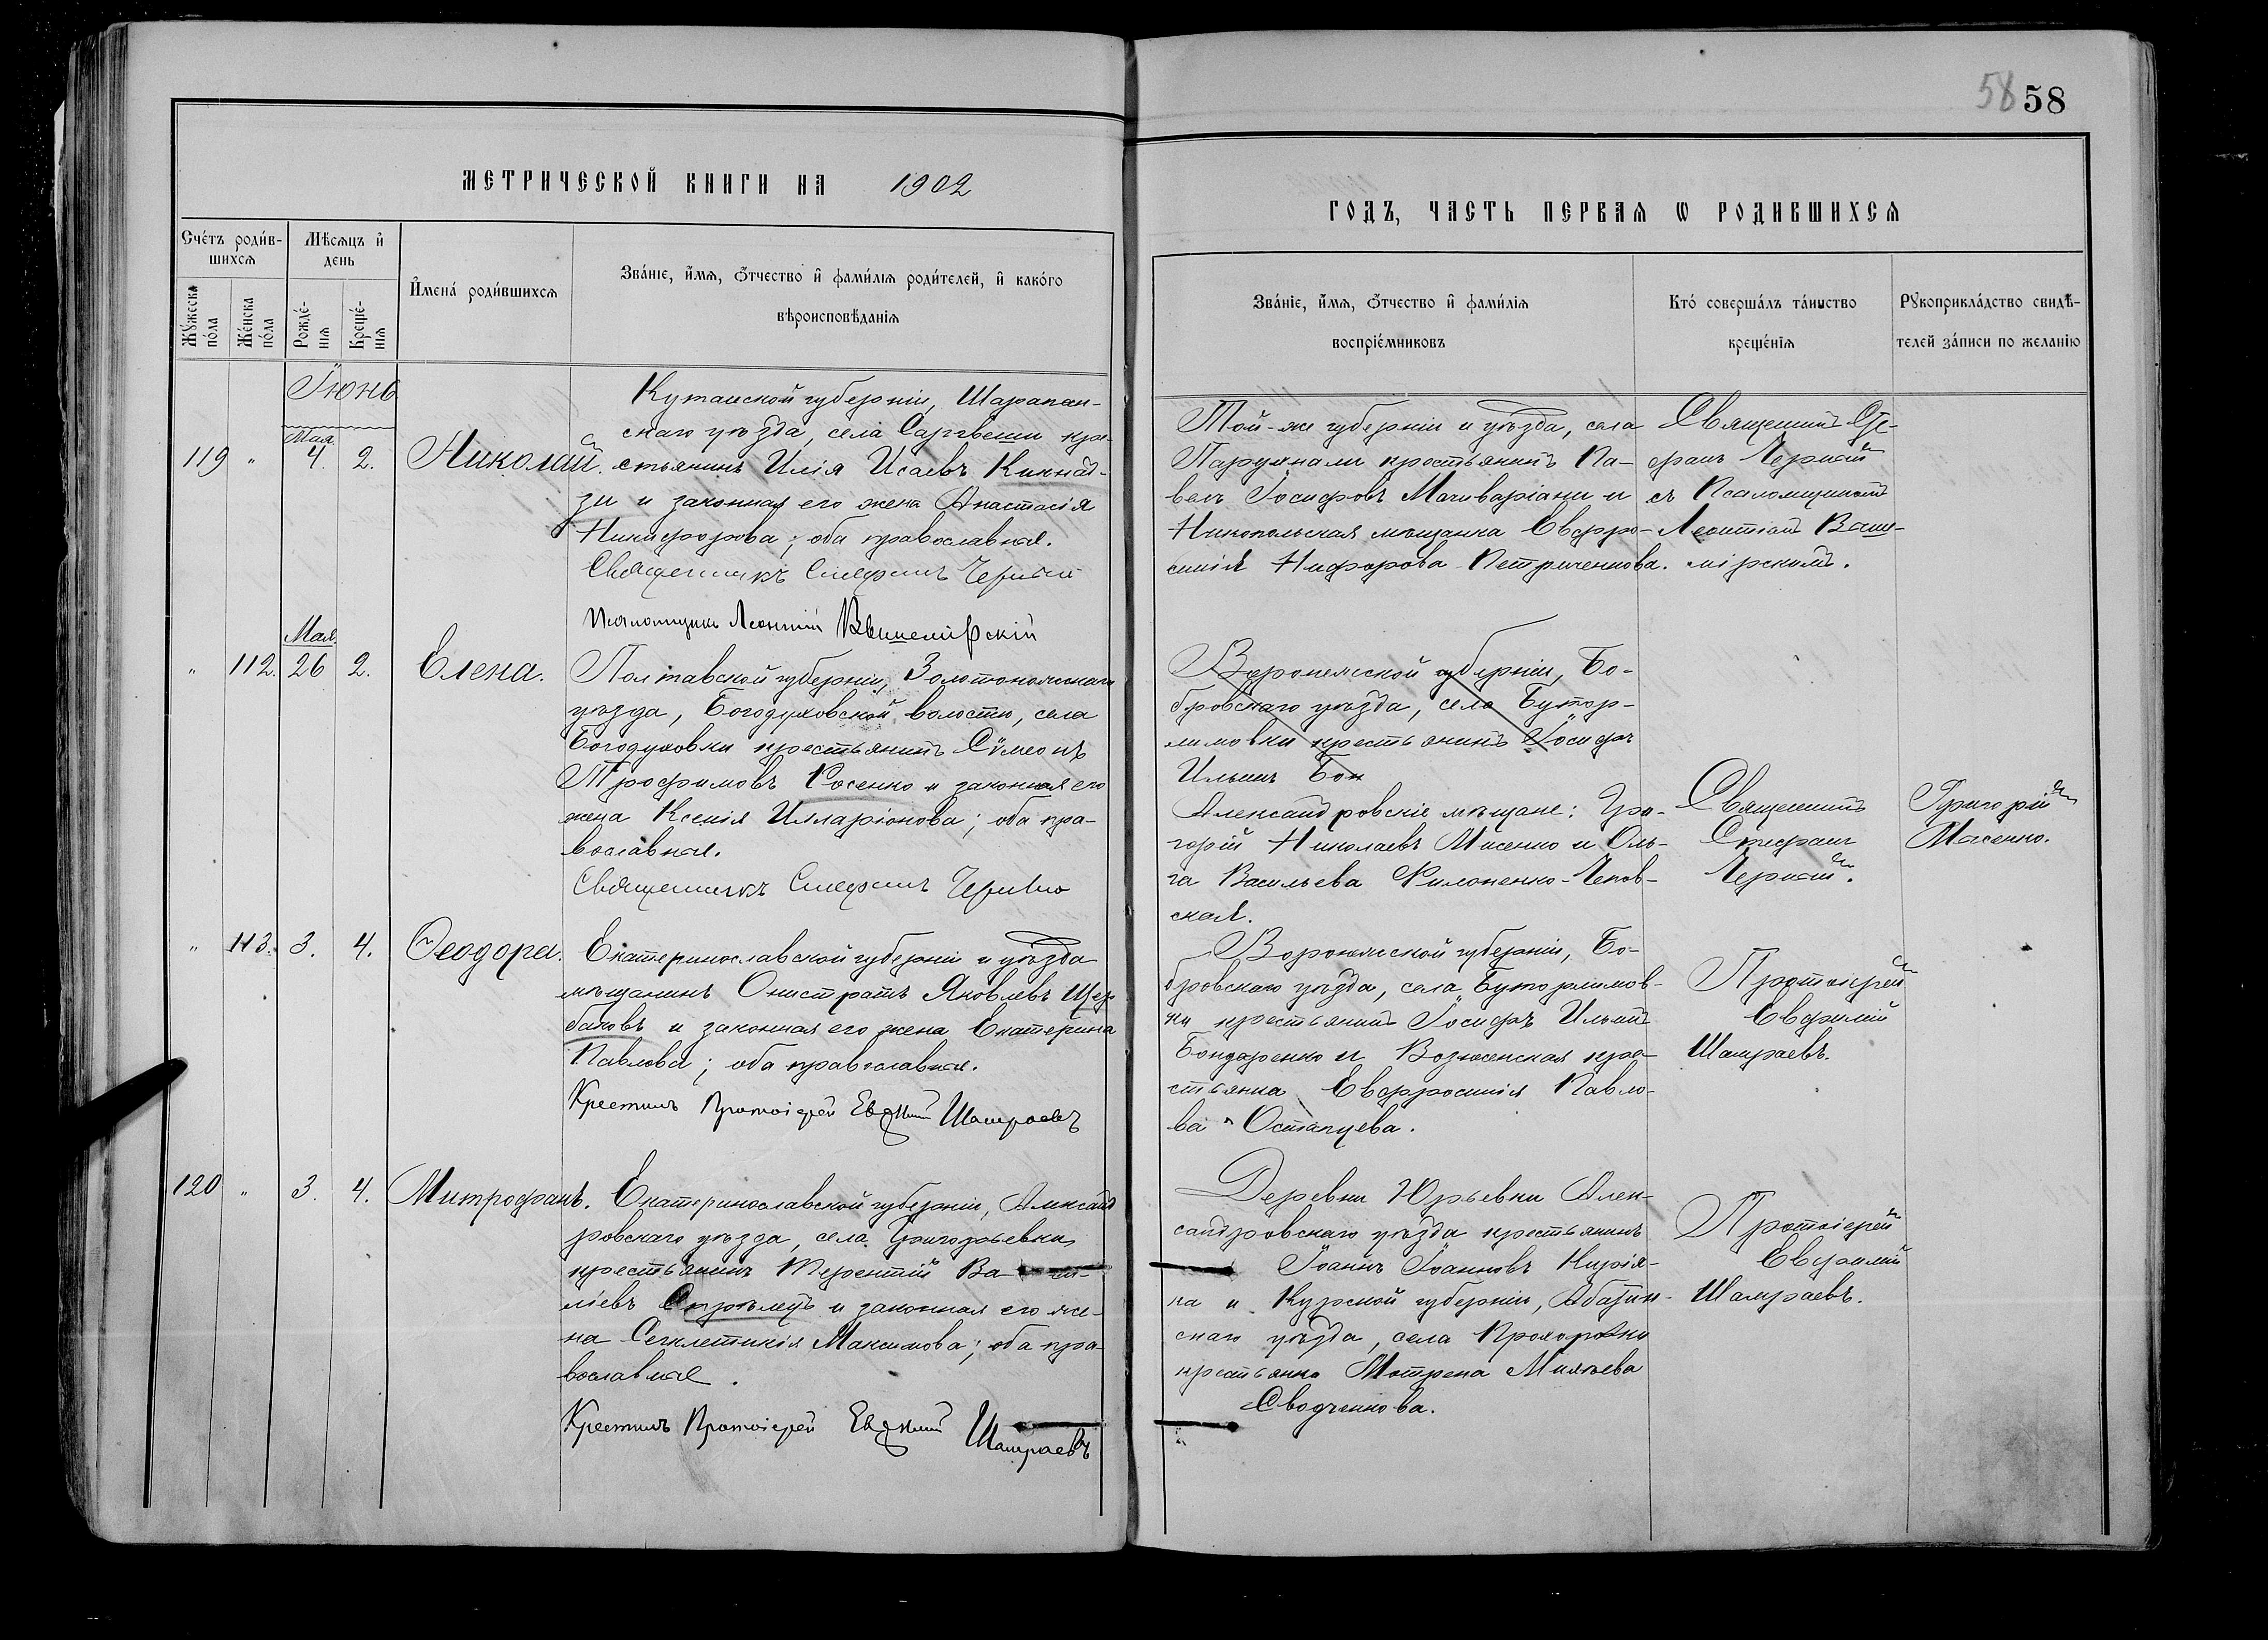 58 58
МЕТРИЧЕСКОЙ КНИГИ НА 1902
ГОДЪ, ЧАСТЬ ПЕРВАЯ Ѡ РОДИВШИХСЯ
Счетъ родив-
шихся
Мѣсяцъ и
день
Мужеска
пола
Женска
пола
Рожде-
нія
Креще-
нія
Имена родившихся
Званіе, имя, отчество и фамилія родителей, и какого
вѣроисповѣданія
Званіе, имя, отчество и фамилія
воспріемниковъ
Кто совершалъ таинство
крещенія
Рукоприкладство свидѣ-
телей записи по желанію
Іюнь
119 " Мая 4. 2. Николай.
Кутаисской губерніи, Шарапан-
скаго уѣзда, села Саргвеши кре-
стьянинъ Илія Исаевъ Кикнад-
зи и законная его жена Анастасія
Никифорова; оба православные.
Священникъ Стефанъ Черный
Псаломщикъ Леонтій
Той-же губерніи и уѣзда, села
крестьянинъ Па-
велъ Іосифовъ Мачиваріани и
Никопольская мѣщанка Евфро-
синія Петриченкова.
Священникъ Сте-
фанъ Черный
съ Псаломщикомъ
Леонтіемъ Выше-
мірскимъ.
" 112. Мая 26 2. Елена.
Полтавской губерніи, Золотоношскаго
уѣзда, Богодуховской волости, села
Богодуховки крестьянинъ Сѵмеонъ
Трофимовъ Косенко и законная его
жена Ксенія Илларіонова; оба пра-
вославные.
Священникъ Стефанъ Черный
Воронежской губерніи, Бо-
бровскаго уѣзда, села Бутур-
лимовки крестьянинъ Іосифъ
Ильинъ Бон
Александровскіе мѣщане: Гри-
горій Николаевъ Мисенко и Оль-
га Васильева Филоненко-Чехов-
ская.
Священникъ
Стефанъ
Черный.
Григорій
Масенко.
" 113. 3. 4. Ѳеодора.
Екатеринославской губерніи и уѣзда
мѣщанинъ Онистратъ Яковлевъ Щер-
баковъ и законная его жена Екатерина
Павлова; оба православные.
Крестилъ Протоіерей Евѳимій Шамраевъ
Воронежской губерніи, Бо-
бровскаго уѣзда, села Бутурлимов-
ки крестьянинъ Іосифъ Ильинъ
Бондаренко и Вознесенская кре-
стьянка Евфросинія Павло-
ва Остапцева.
Протоіерей
Евфимій
Шамраевъ.
120 " 3. 4. Митрофанъ.
Екатеринославской губерніи, Александ
ровскаго уѣзда, села Григорьевки
крестьянинъ Терентій Ва си-
ліевъ Стрѣлецъ и законная его же-
на Сегклетикія Максимова; оба пра-
вославные.
Крестилъ Протоіерей Евѳимій Шамраевъ
Деревни Юрьевки Алек-
сандровскаго уѣзда крестьянинъ
Іоаннъ Іоанновъ Кирія-
ка и Курской губерніи,
скаго уѣзда, села Прохоровки
крестьянка Матрена Михѣева
Сводченкова.
Протоіерей
Евфимій
Шамраевъ.